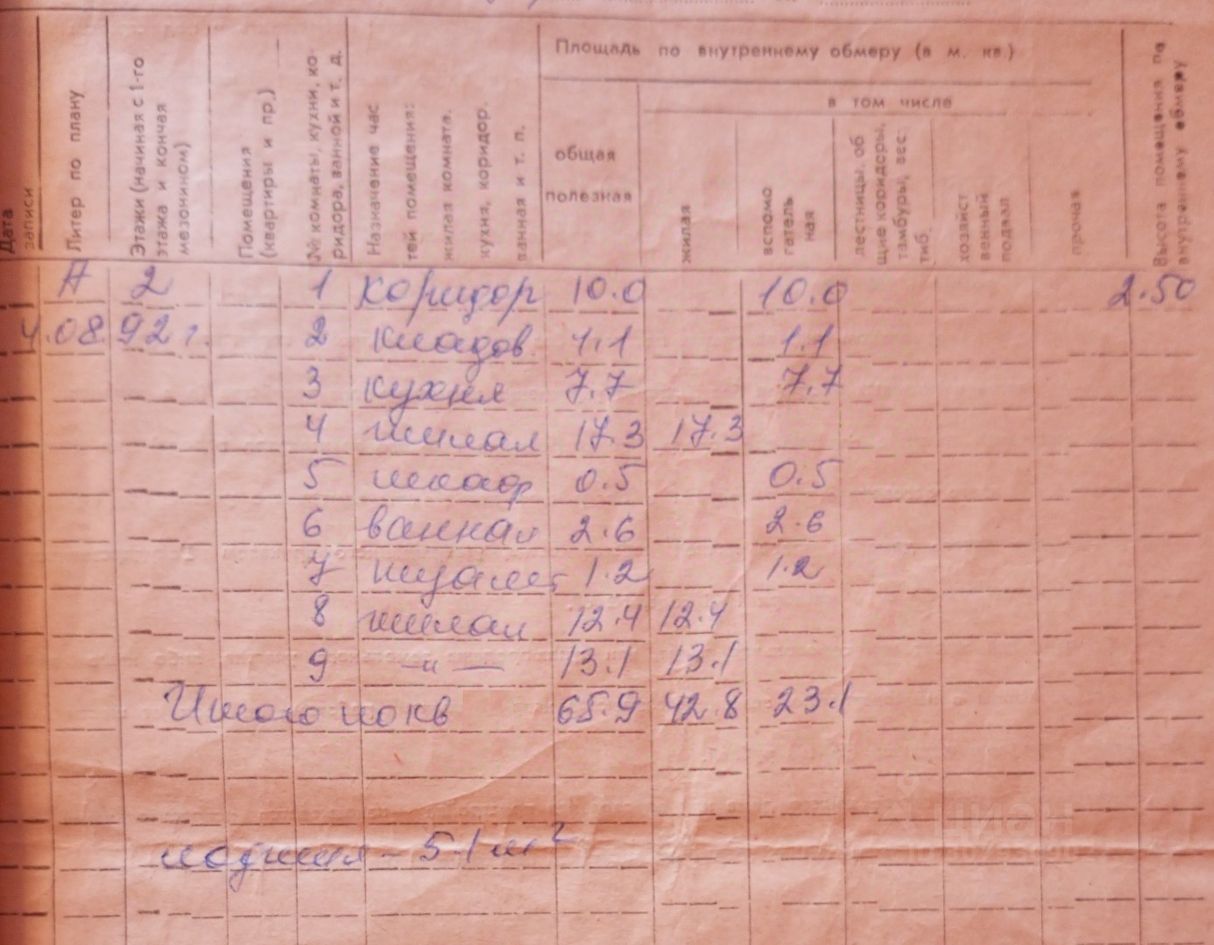 Площадь по внутреннему обмеру (в м. кв.)
в том числе
Дата записи
Литер по плану
Этажи (начиная с 1-го этажа и кончая мезонином)
Помещения (квартиры и пр.)
№ комнаты, кухни, коридора, ванной и т. д.
Назначение частей помещения: жилая комната, кухня, коридор, ванная и т. п.
общая полезная
жилая
вспомогательная
лестницы, общие коридоры, тамбуры, вес-тиб.
хозяйственный подвал
прочая
Высота помещения по внутреннему обмеру
А 2 1 коридор 10.0 10.0 2.50
4.08 92 г. 2 кладов 1.1 1.1
3 кухня 7.7 7.7
4 жилая 17.3 17.3
5 шкаф 0.5 0.5
6 ванная 2.6 2.6
7 туалет 1.2 1.2
8 жилая 12.4 12.4
9 —"— 13.1 13.1
Итого по кв 65.9 42.8 23.1
лоджия - 5.1 м²
ЦИОН